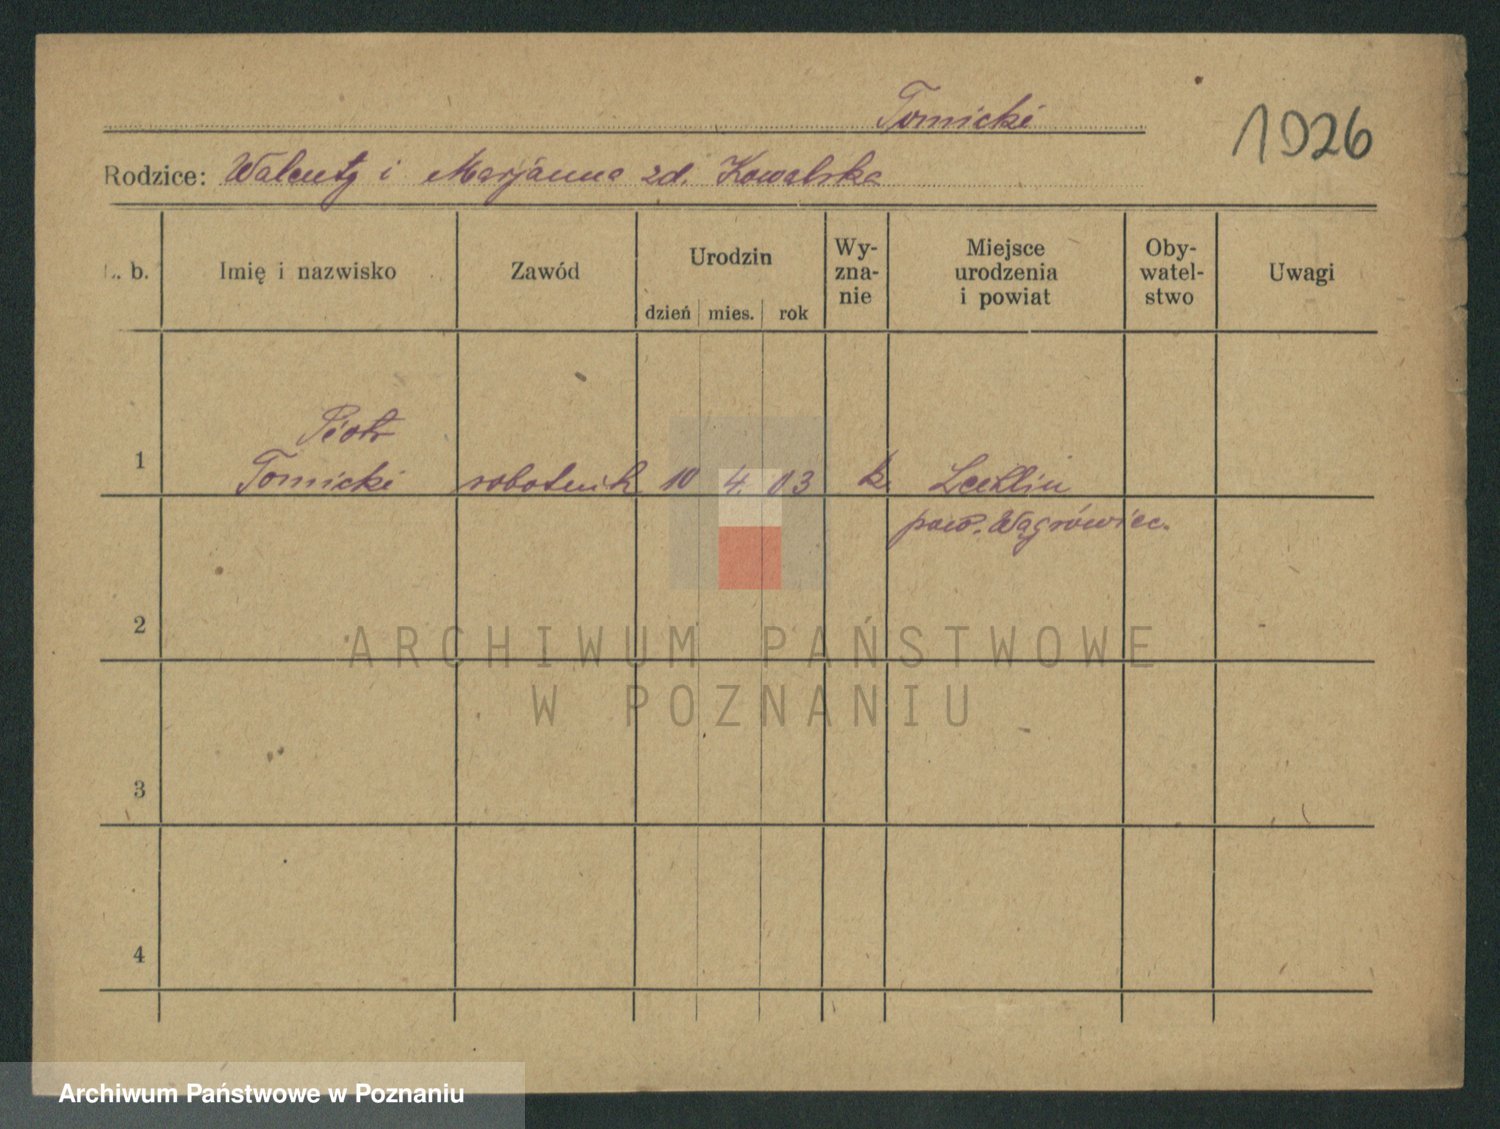 Tomicki
1926
Rodzice: Walenty i Marjanna zd. Kowalska
L. b.
Imię i nazwisko
Zawód
Urodzin
dzień mies. rok
Wy-
zna-
nie
Miejsce
urodzenia
i powiat
Oby-
watel-
stwo
Uwagi
Piotr
1 Tomicki robotnik 10 4. 03 k.
pow. Wągrówiec.
2
3
4
ARCHIWUM PAŃSTWOWE
W POZNANIU
Archiwum Państwowe w Poznaniu